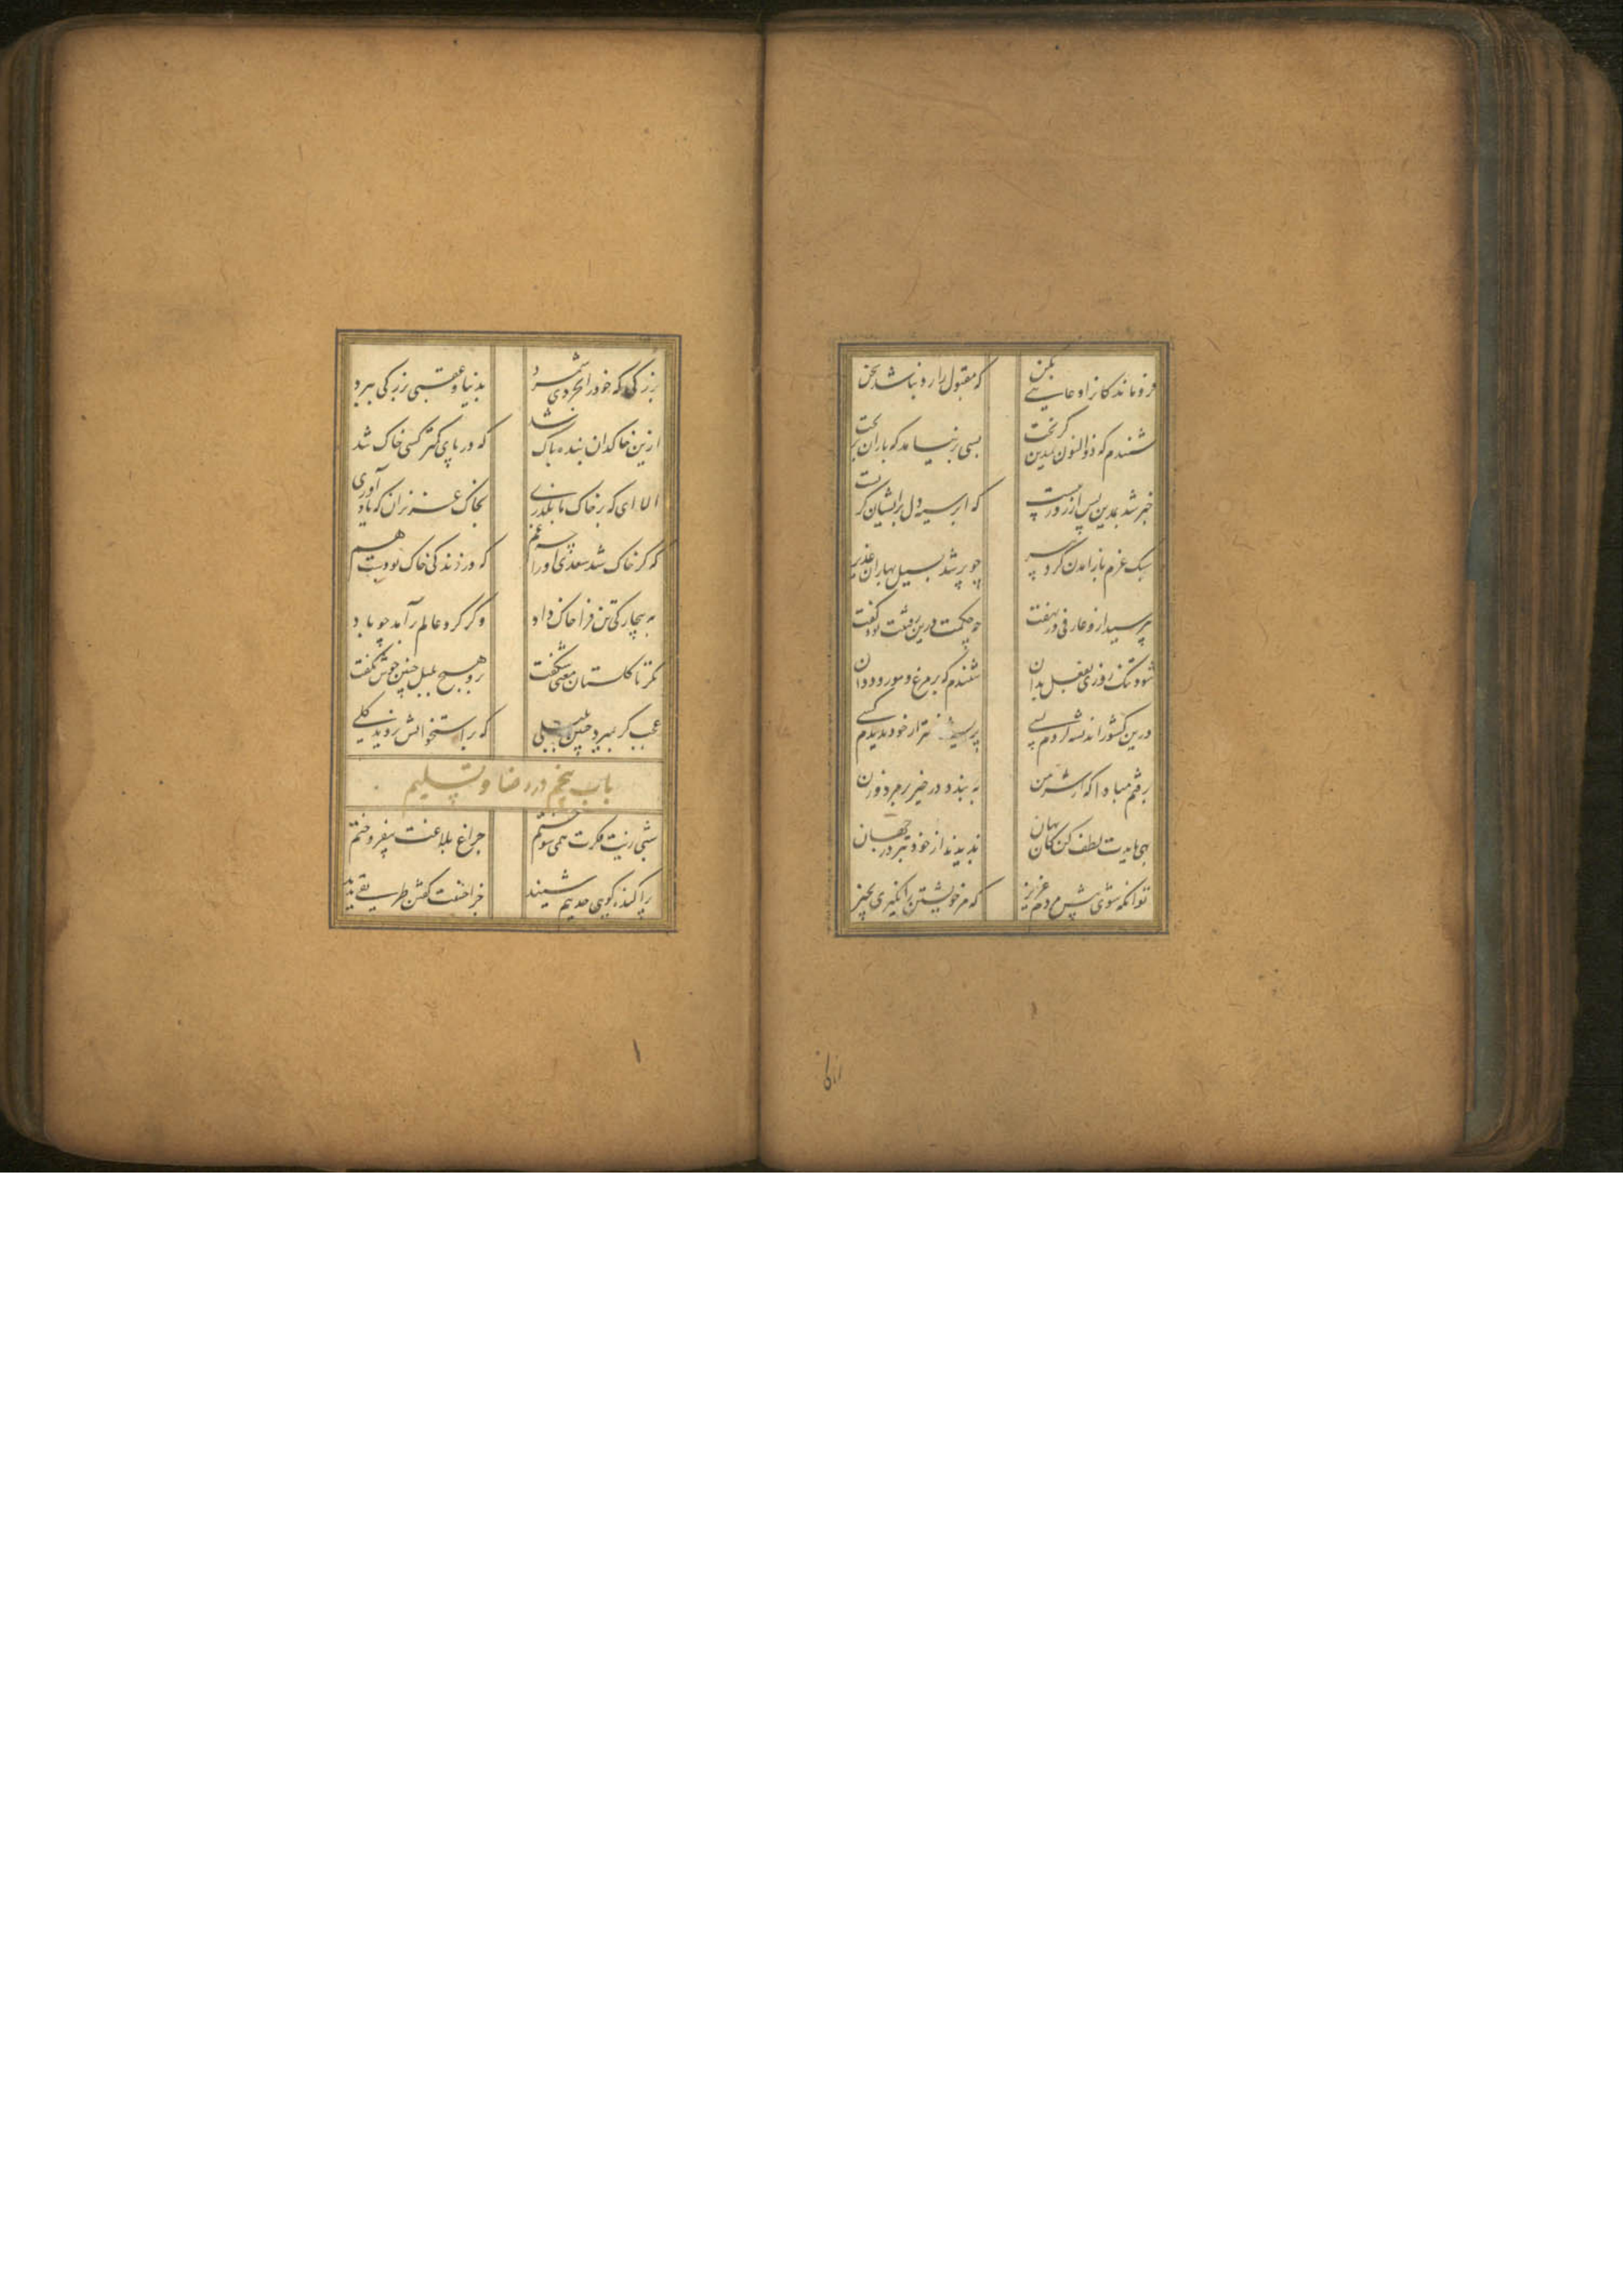 فروماندگانرا دعایی بکن که مقبول را رد نباشد سخن
شنیدم که ذوالنون بمدین گریخت بسی برنیامد که باران بریخت
خبر شد بمدین پس از روز بیست که ابر سیه دل برایشان گریست
سبک عزم باز آمدن کرد پیر چو پر شد بسیل بهاران غدیر
بپرسید ازو عارفی در نهفت چه حکمت درین رفتنت بود گفت
شود تنگ روزی بفعل بدان شنیدم که بر مرغ و مور و ددان
درین کشور اندیشه کردم بسی پریشان تر از خود ندیدم کسی
برفتم مبادا که از شر من به بندد در خیر بر مرد و زن
بهی بایدت لطف کن کان بهان ندیدند از خود بتر در جهان
تو آنگه شوی پیش مردم عزیز که مر خویشتن را نگیری بچیز
بزرگی که خود را بخردی شمرد بدنیا و عقبی بزرگی ببرد
ازین خاکدان بنده پاک شد که در پای کمتر کسی خاک شد
الا ای که بر خاک ما بگذری بخاک عزیزان که یاد آوری
که گر خاک شد سعدی او را چه غم که در زندگی خاک بودست هم
به بیچارگی تن فرا خاک داد وگر گرد عالم برآمد چو باد
نگر تا گلستان معنی شکفت برو هیچ بلبل چنین خوش نگفت
عجب گر بمیرد چنین بلبلی که بر استخوانش نروید گلی
باب پنجم در رضا و تسلیم
شبی زیت فکرت همی سوختم چراغ بلاغت بیفروختم
پراکنده گویی حدیثم شنید جز احسنت گفتن طریقی ندید